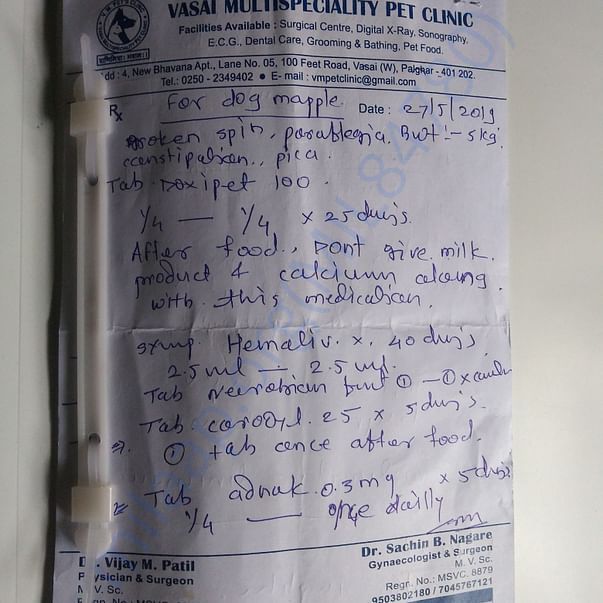 VASAI MULTISPECIALITY PET CLINIC
Facilities Available : Surgical Centre, Digital X-Ray, Sonography,
E.C.G., Dental Care, Grooming & Bathing, Pet Food.
dd : 4, New Bhavana Apt., Lane No. 05, 100 Feet Road, Vasai (W), Palghar - 401 202.
Tel.: 0250 - 2349402 ● E- mail : vmpetclinic@gmail.com
Rx For dog mapple Date : 27/5/2019
Broken spin, parablegia. Bwt :- 5kg.
constipation., pica.
Tab. Doxipet 100.
1/4 — 1/4 x 25 days.
After food., Dont give. milk.
product & calcium along
with this medication.
syrup. Hemaliv. x. 40 days
2.5 ml — 2.5 ml.
Tab Neurobion ① — ① x
Tab 25 x 5 days.
⇒ ① tab once after food.
Tab adnak 0.3mg x 5 days
1/4 — once dailly
Dr. Sachin B. Nagare
Gynaecologist & Surgeon
M. V. Sc.
Regn. No.: MSVC. 8879
9503802180 / 7045767121
D. Vijay M. Patil
Physician & Surgeon
M. V. Sc.
Regn. No.: MSVC